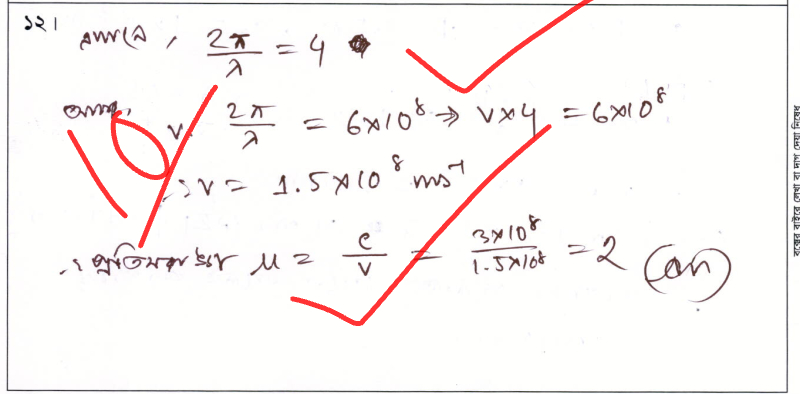 ১২।
এখানে, 2π/λ = 4
আবার,
v · 2π/λ = 6×10⁸ ⇒ v×4 = 6×10⁸
∴ v = 1.5×10⁸ ms⁻¹
∴ প্রতিসরণাঙ্ক μ = c/v = 3×10⁸/1.5×10⁸ = 2 (Ans)
বক্সের বাইরে লেখা বা দাগ দেয়া নিষেধ